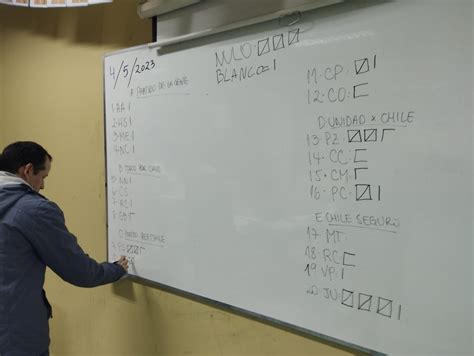 4/5/2023
A. PARTIDO DE LA GENTE
1: AA I
2: HG I
3: ME I
4: NC I
B. TODO POR CHILE
5: NN I
6: CS
7: RC I
C. PARTIDO REPUBLICANO
NULO:
BLANCO= I
11: CP: I
12: CO:
D. UNIDAD X CHILE
13: PZ:
14: CC:
15: CM:
16: PC: I
E. CHILE SEGURO
17: MT:
18: RC
19: VP: I
20: JU: I